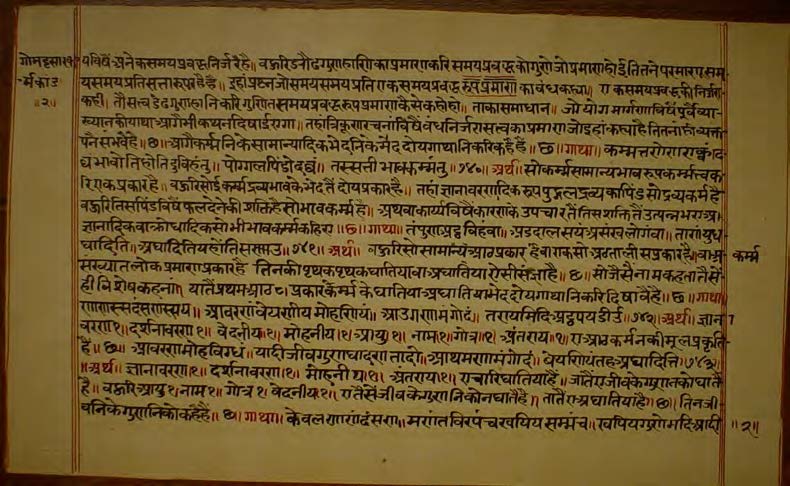 गोमट्टसार१
र्मकाउ
॥२॥
यविषैं अनेकसमयप्रबद्धनिर्जरैहै॥ बऊरिडनौढगुणहाणिकाप्रमाणकरिसमयप्रबद्धकोगुणेंजोप्रमाणहोईतितनेपरमाणूसम
यसमयप्रतिसत्तारूपरहैहैं॥ इहांप्रष्नजोसमयसमयप्रतिएकसमयप्रबद्धरूपप्रमाणकाबंधकह्या॥ एकसमयप्रबद्धकीनिर्जरा
कही॥ तौसत्वडेढगुणहानिकरिगुणितसमयप्रबद्धरूपप्रमाणकैसेकह्योहो॥ ताकासमाधान॥ जोयोगमार्गणाविषैंपूर्वैव्या
ख्यानकीयाथा॥ आगैभीकथनदिषाईएगा॥ तहांत्रिकूणरचनाविषैंबंधनिर्जरासत्वकाप्रमाणजोइहांकह्याहैतितनांहीव्यक्त
पनैंसंभवैहै॥ छ॥ आगैंकर्म्मनिकेसामान्यादिकभेदनिकेभेददोयगाथानिकरिकहैहैं॥ छ॥ गाथा॥ कम्मत्तणेणएक्कंद
व्वंभावोत्तिहोतिदुविहंतु॥ पोग्गलपिंडोदव्वं॥ तस्सत्तीभावकम्मंतु॥७४०॥ अर्थ॥ सोकर्म्मसामान्यभावरूपकर्म्मत्वक
रिएकप्रकारहै॥ बऊरिसोईकर्म्मद्रव्यभावकेभेदतैंदोयप्रकारहै॥ तहांज्ञानावरणादिकरूपपुद्गलद्रव्यकापिंडसोद्रव्यकर्महै
बऊरितिसपिंडविषैंफलदेनेकीशक्तिहैसोभावकर्म्महै॥ अथवाकार्य्यविषैंकारणकेउपचारतैंतिसशक्तितैंउत्पन्नभएअ
ज्ञानादिकवाक्रोधादिकसोभीभावकर्म्मकहिए॥ छ॥ गाथा॥ तंपुणअट्ठविहंवा॥ अडदालसयंअसंखलोगंवा॥ ताणंपुध
घादित्ति॥ अघादित्तियहोंतिसण्णाउ॥७४१॥ अर्थ॥ बऊरिसोसामान्यकर्मआठप्रकारहैवाएकसोअठतालीसप्रकारहैवाअ
कर्म्म
संख्यातलोकप्रमाणप्रकारहै॥ तिनकीपृथकपृथकघातियावाअघातियाऐसीसंज्ञाहै॥ छ॥ सोजैसेनामकहतातैसें
हीविशेषकहना॥ यातैंप्रथमआठ८प्रकारकर्म्मकेघातियाअघातियाभेददोयगाथानिकरिदिषावैहैं॥ छ॥ गाथा॥
णाणस्सदंसणस्सय॥ आवरणंवेयणीयमोहणियं॥ आउगणामंगोदं॥ तरायमिदिअट्ठपयडीउ॥७४२॥ अर्थ॥ ज्ञाना
वरण१॥ दर्शनावरण१॥ वेदनीय१॥ मोहनीय१॥ आयु१॥ नाम१॥ गोत्र१॥ अंतराय१॥ एआठकर्मनकीमूलप्रकृति
हैं॥ छ॥ आवरणमोहविग्घं॥ घादीजीवगुणघादणतादो॥ आयुगणामंगोदं॥ वेयणियंतहअघादित्ति॥७४३॥
॥अर्थ॥ ज्ञानावरण१॥ दर्शनावरण१॥ मोहनीय१॥ अंतराय१॥ एचारिघातियाहैं॥ जातैंएजीवकेगुणतकोघातैं
हैं॥ बऊरिआयु१॥नाम१॥ गोत्र१वेदनीय१॥ एतैसेंजीवकेगुणनिकोनघातैहैं॥ तातैंएअघातियाहैं॥ छ॥ तिनजी
वनिकेगुणानिकोकहैहैं॥ छ॥ गाथा॥ केवलणाणंदंसण॥ मणंतविरयंचखयियसम्मंच॥ खयियगुणेमदिआदी
॥२॥